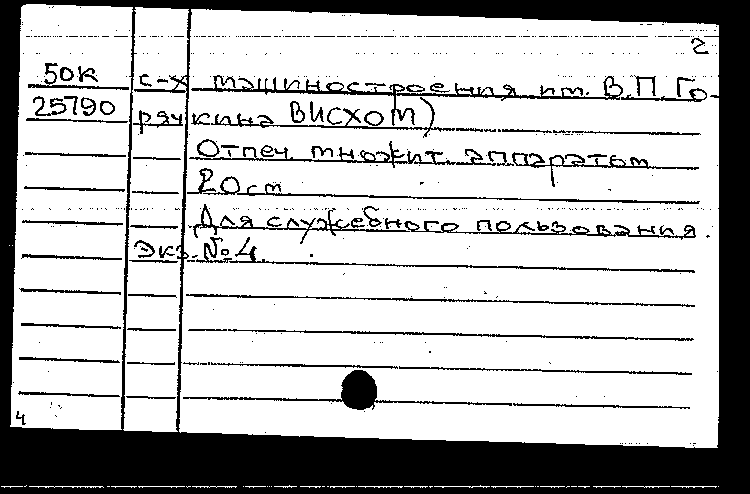 2
50К с-х машиностроения им. В.П. Го-
25790 рячкина ВИСХОМ)
Отпеч. множит. аппаратом
20 см
Для служебного пользования.
Экз. № 4.
4